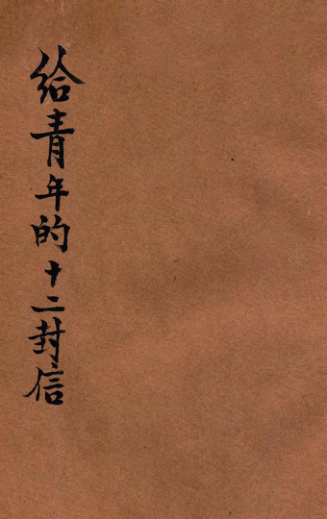 给青年的十二封信